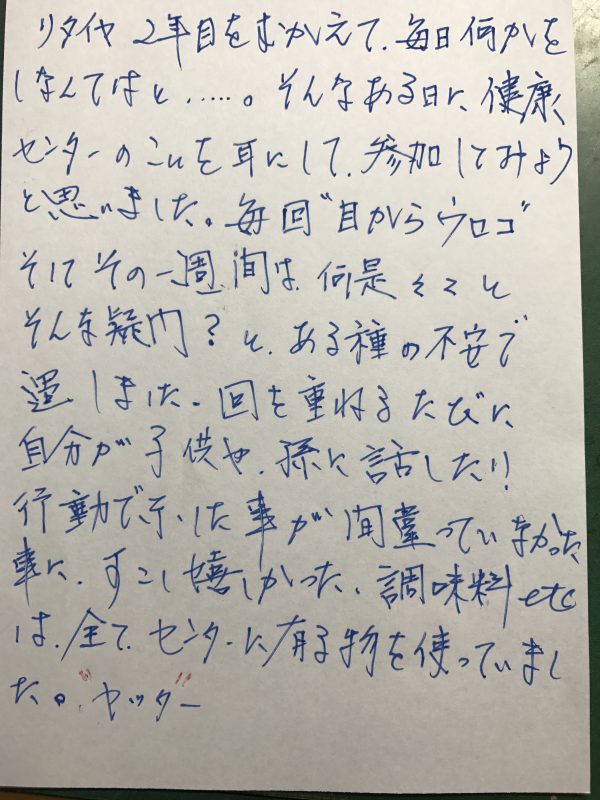 リタイヤ 2年目をむかえて、毎日何かを
しなんてはと.....。そんなある日に、健康
センターのことを耳にして、参加してみよう
と思いました。毎回"目からウロコ"
そしてその一週間は、何是々々と
そんな疑問?と、ある種の不安で
過しました。回を重ねるたびに
自分が子供や、孫に話したり!
行動で示した事が間違っていなかった
事に、すこし嬉しかった、調味料etc
は、全て、センターに有る物を使っていまし
た。"ヤッター"